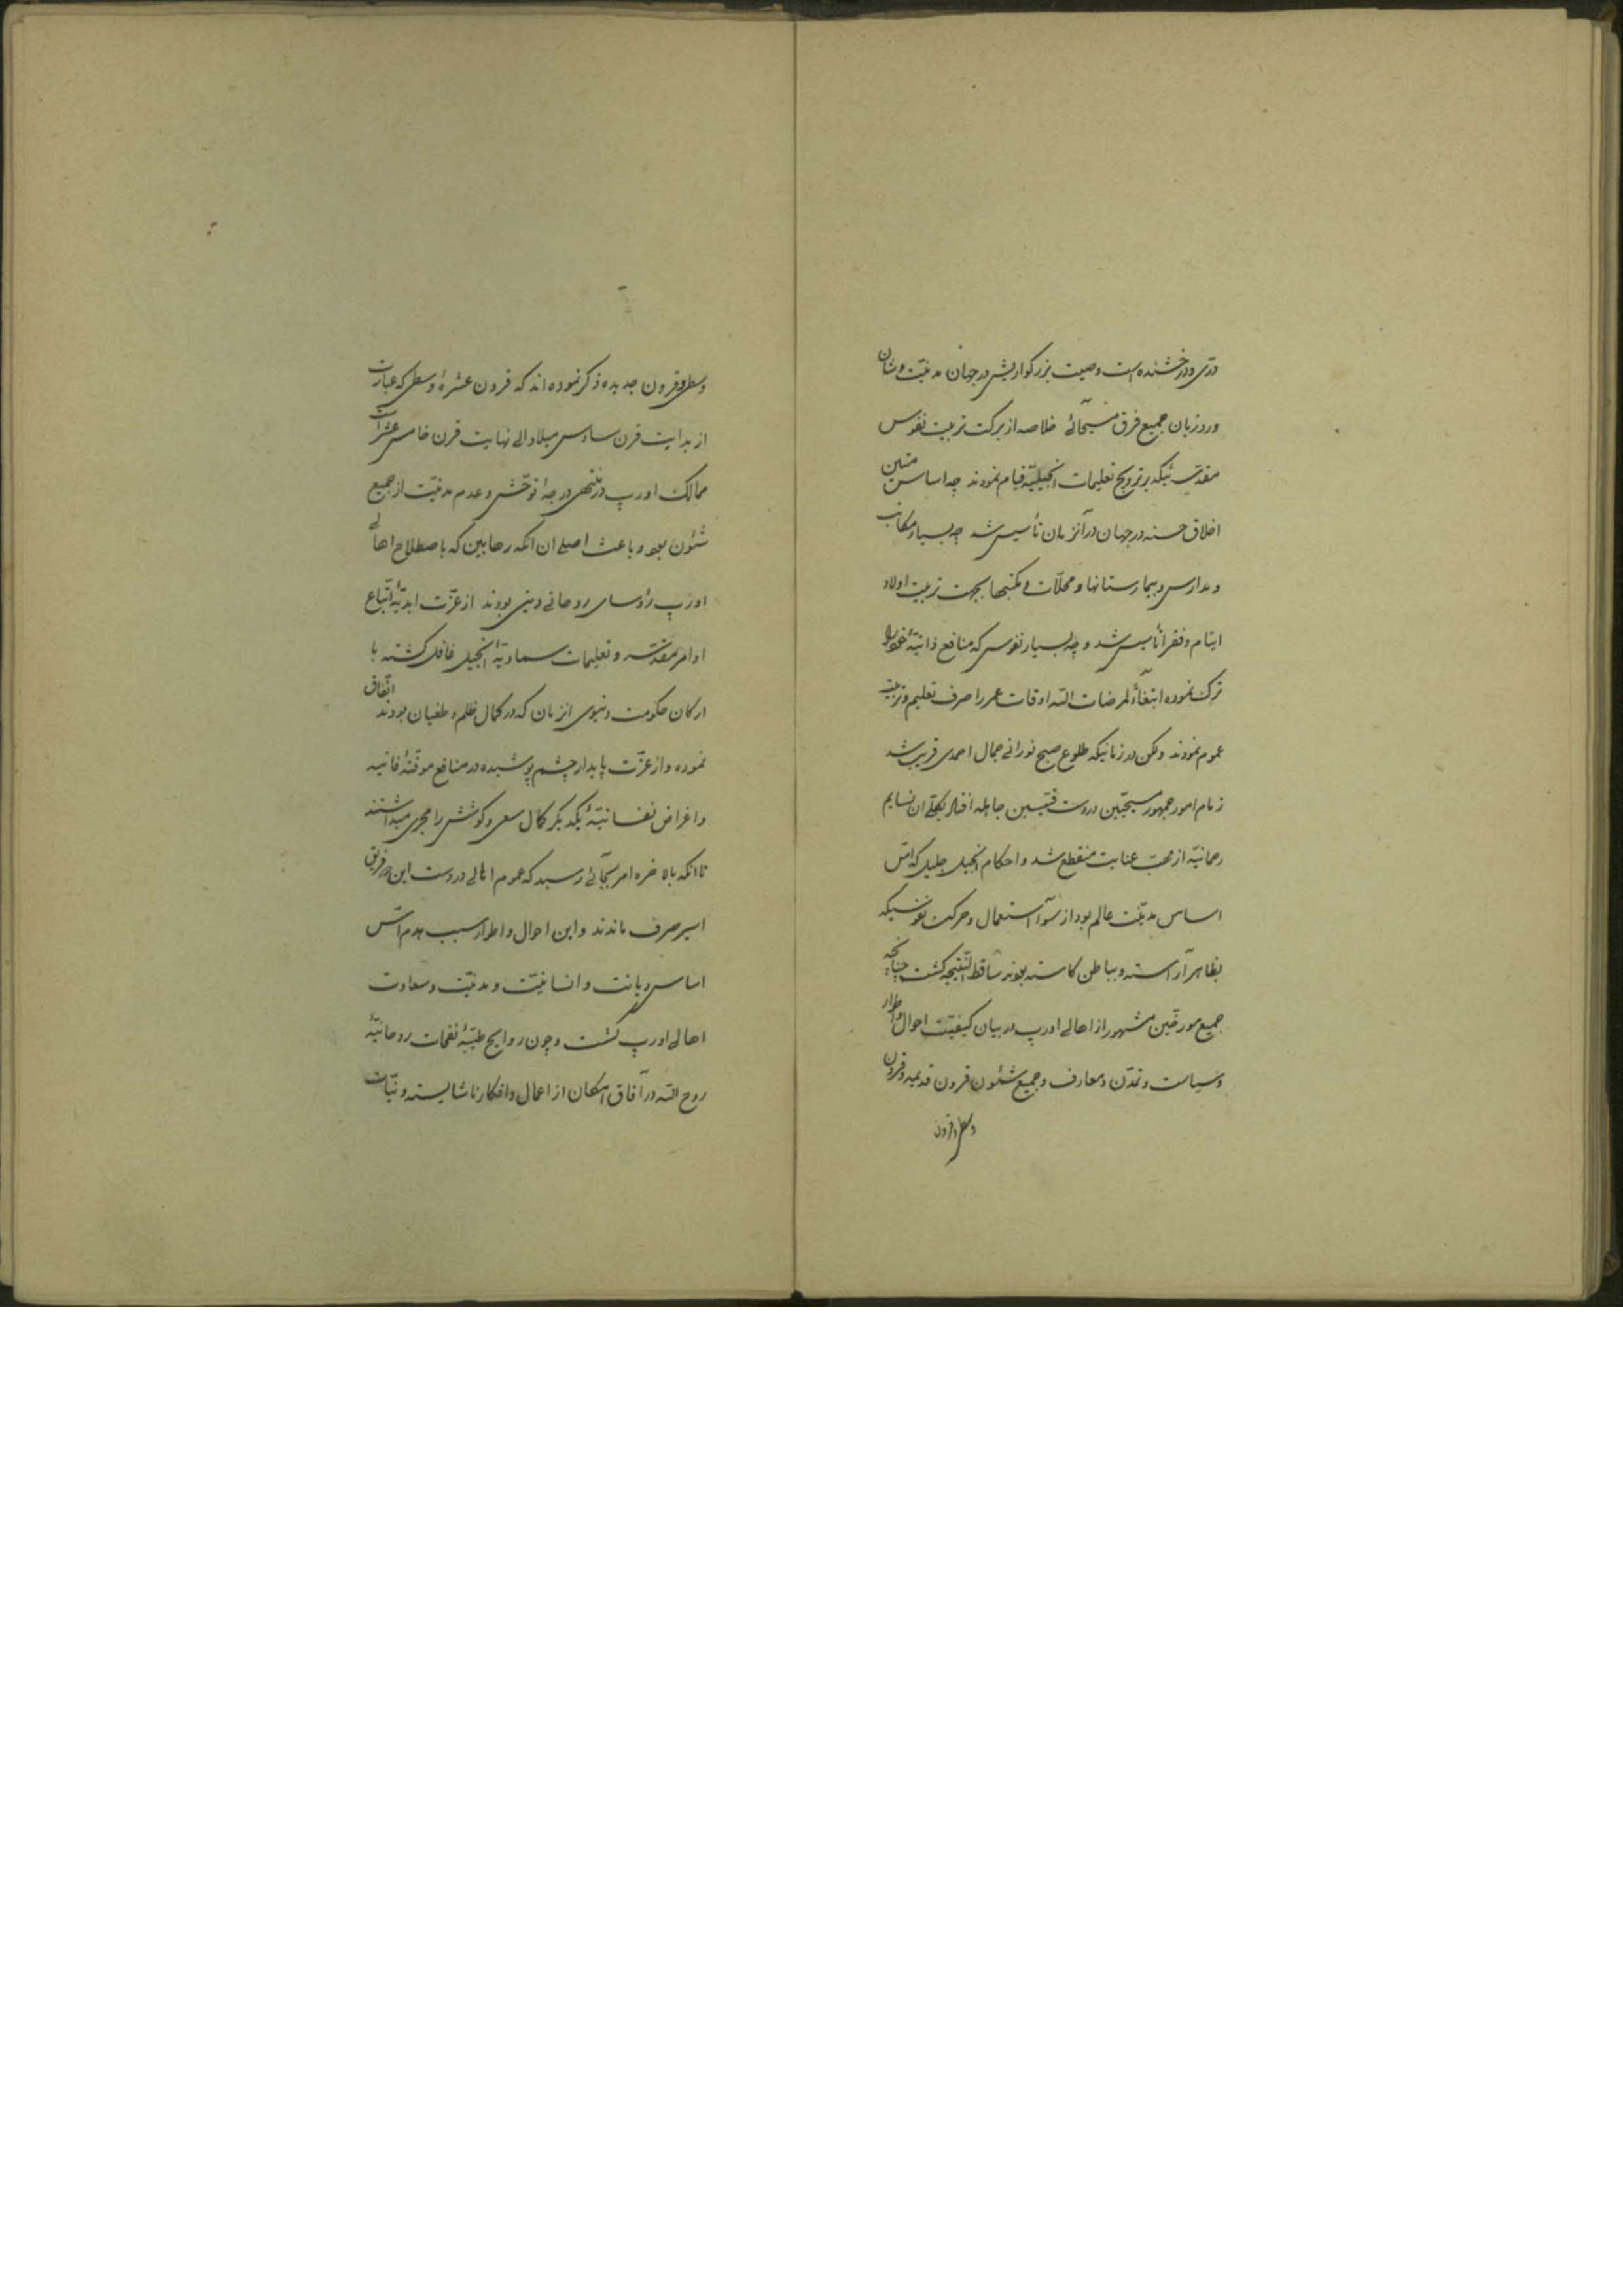 درّی و درخشنده است وصیت بزرگواریش در جهان مدنیّت و شان
ورد زبان جمیع فرق مسیحائی خلاصه از برکت تربیت نفوس
مقدسه ئیکه بر ترویج تعلیمات انجیلیّه قیام نمودند چه اساس متین
اخلاق حسنه در جهان در آنزمان تأسیس شد چه بسیار مکاتب
و مدارس و بیمارستانها و محلّات و مکتبها بجهت تربیت اولاد
ایتام و فقرا تأسیس شد و چه بسیار نفوس که منافع ذاتیّهٔ خود را
ترک نموده ابتغاءً لمرضات الله اوقات عمر را صرف تعلیم و تربیت
عموم نمودند ولکن در زمانیکه طلوع صبح نورانی جمال احمدی قریب شد
زمام امور جمهور مسیحیّین در دست قسّیسین جاهله افتاد بکلّی ان نسایم
رحمانیّه از مهبّ عنایت منقطع شد و احکام انجیل جلیل که اسّ
اساس مدنیّت عالم بود از سوء استعمال و حرکت نفوسیکه
بظاهر آراسته و بباطن کاسته بودند ساقط النّتیجه گشت چنانچه
جمیع مورّخین مشهور از اهالی اورپ در بیان کیفیّت احوال و اطوار
و سیاست و تمدّن و معارف و جمیع شئون قرون قدیمه و قرون
وسطی و قرون
وسطی و قرون جدیده ذکر نموده اند که قرون عشرهٔ وسطی که عبارت
از بدایت قرن سادس میلاد الی نهایت قرن خامس عشر است
ممالک اورپ در منتهی درجهٔ توحّش و عدم مدنیّت از جمیع
شئون بود و باعث اصلی ان انکه رهابین که باصطلاح اهالی
اورپ رؤسای روحانی و دینی بودند از عزّت ابدیّهٔ اتّباع
اوامر مقدّسه و تعلیمات سماویّهٔ انجیل غافل گشته با
ارکان حکومت دنیوی انزمان که در کمال ظلم و طغیان بودند اتّفاق
نموده و از عزّت پایدار چشم پوشیده در منافع موقّتهٔ فانیه
و اغراض نفسانیّهٔ یکدیگر کمال سعی و کوشش را مجری میداشتند
تا انکه بالاخره امر بجائی رسید که عموم اهالی در دست این دو فریق
اسیر صرف ماندند و این احوال و اطوار سبب هدم اسّ
اساس دیانت و انسانیّت و مدنیّت و سعادت
اهالی اورپ گشت و چون روایح طیّبهٔ نفحات روحانیّهٔ
روح الله در آفاق امکان از اعمال و افکار ناشایسته و نیّات